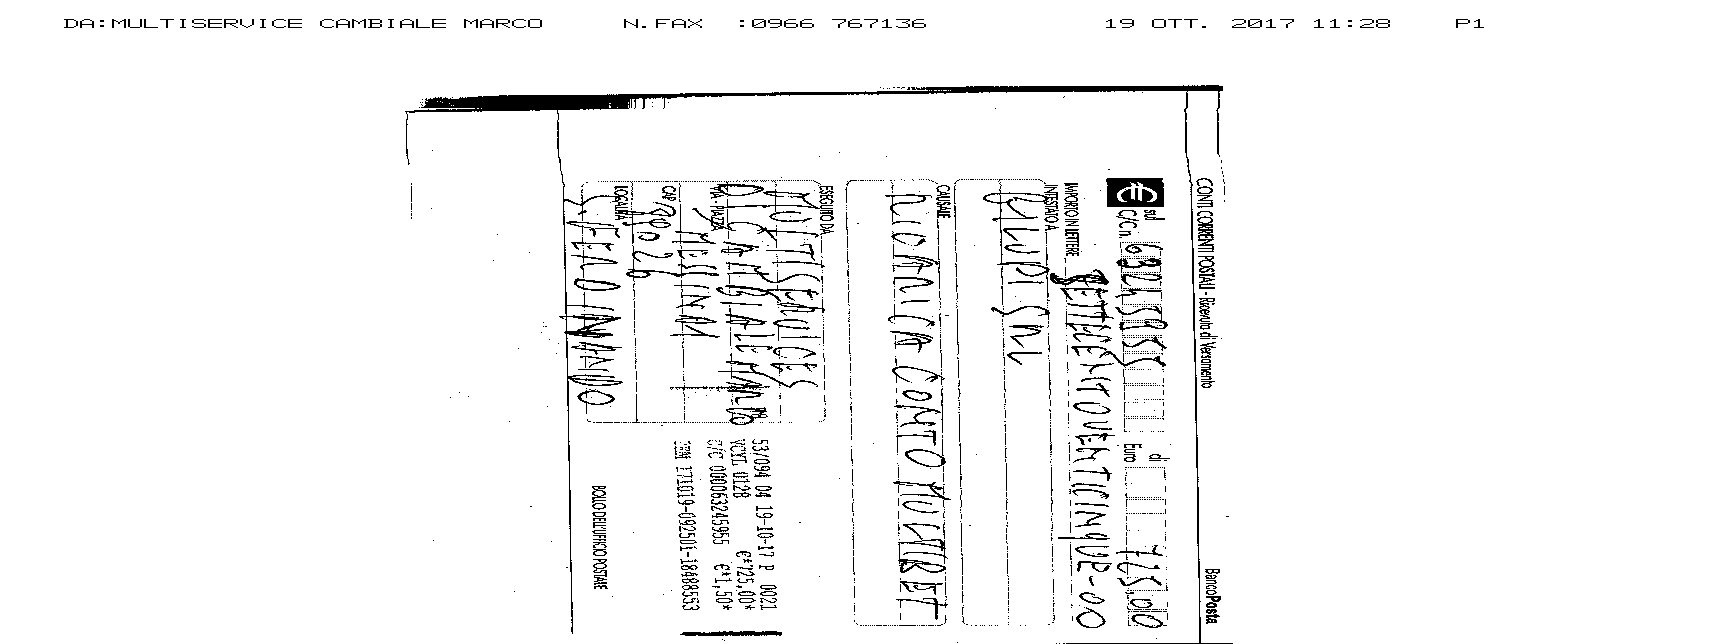 DA:MULTISERVICE CAMBIALE MARCO N.FAX :0966 767136 19 OTT. 2017 11:28 P1
CONTI CORRENTI POSTALI - Ricevuta di Versamento BancoPosta
€ sul C/C n. di Euro 725,00
IMPORTO IN LETTERE SETTECENTOVENTICINQUE-00
INTESTATO A
SRL
CAUSALE
RICARICA CONTO MULTIBET
ESEGUITO DA
MULTISERVICES
DI CAMBIALE MARCO
VIA - PIAZZA
MESSINA
CAP
LOCALITÀ
53/094 04 19-10-17 P 0021
VCYL 0128 €*725,00*
C/C 000063245955 €*1,50*
171019-092501-18488553
BOLLO DELL'UFFICIO POSTALE